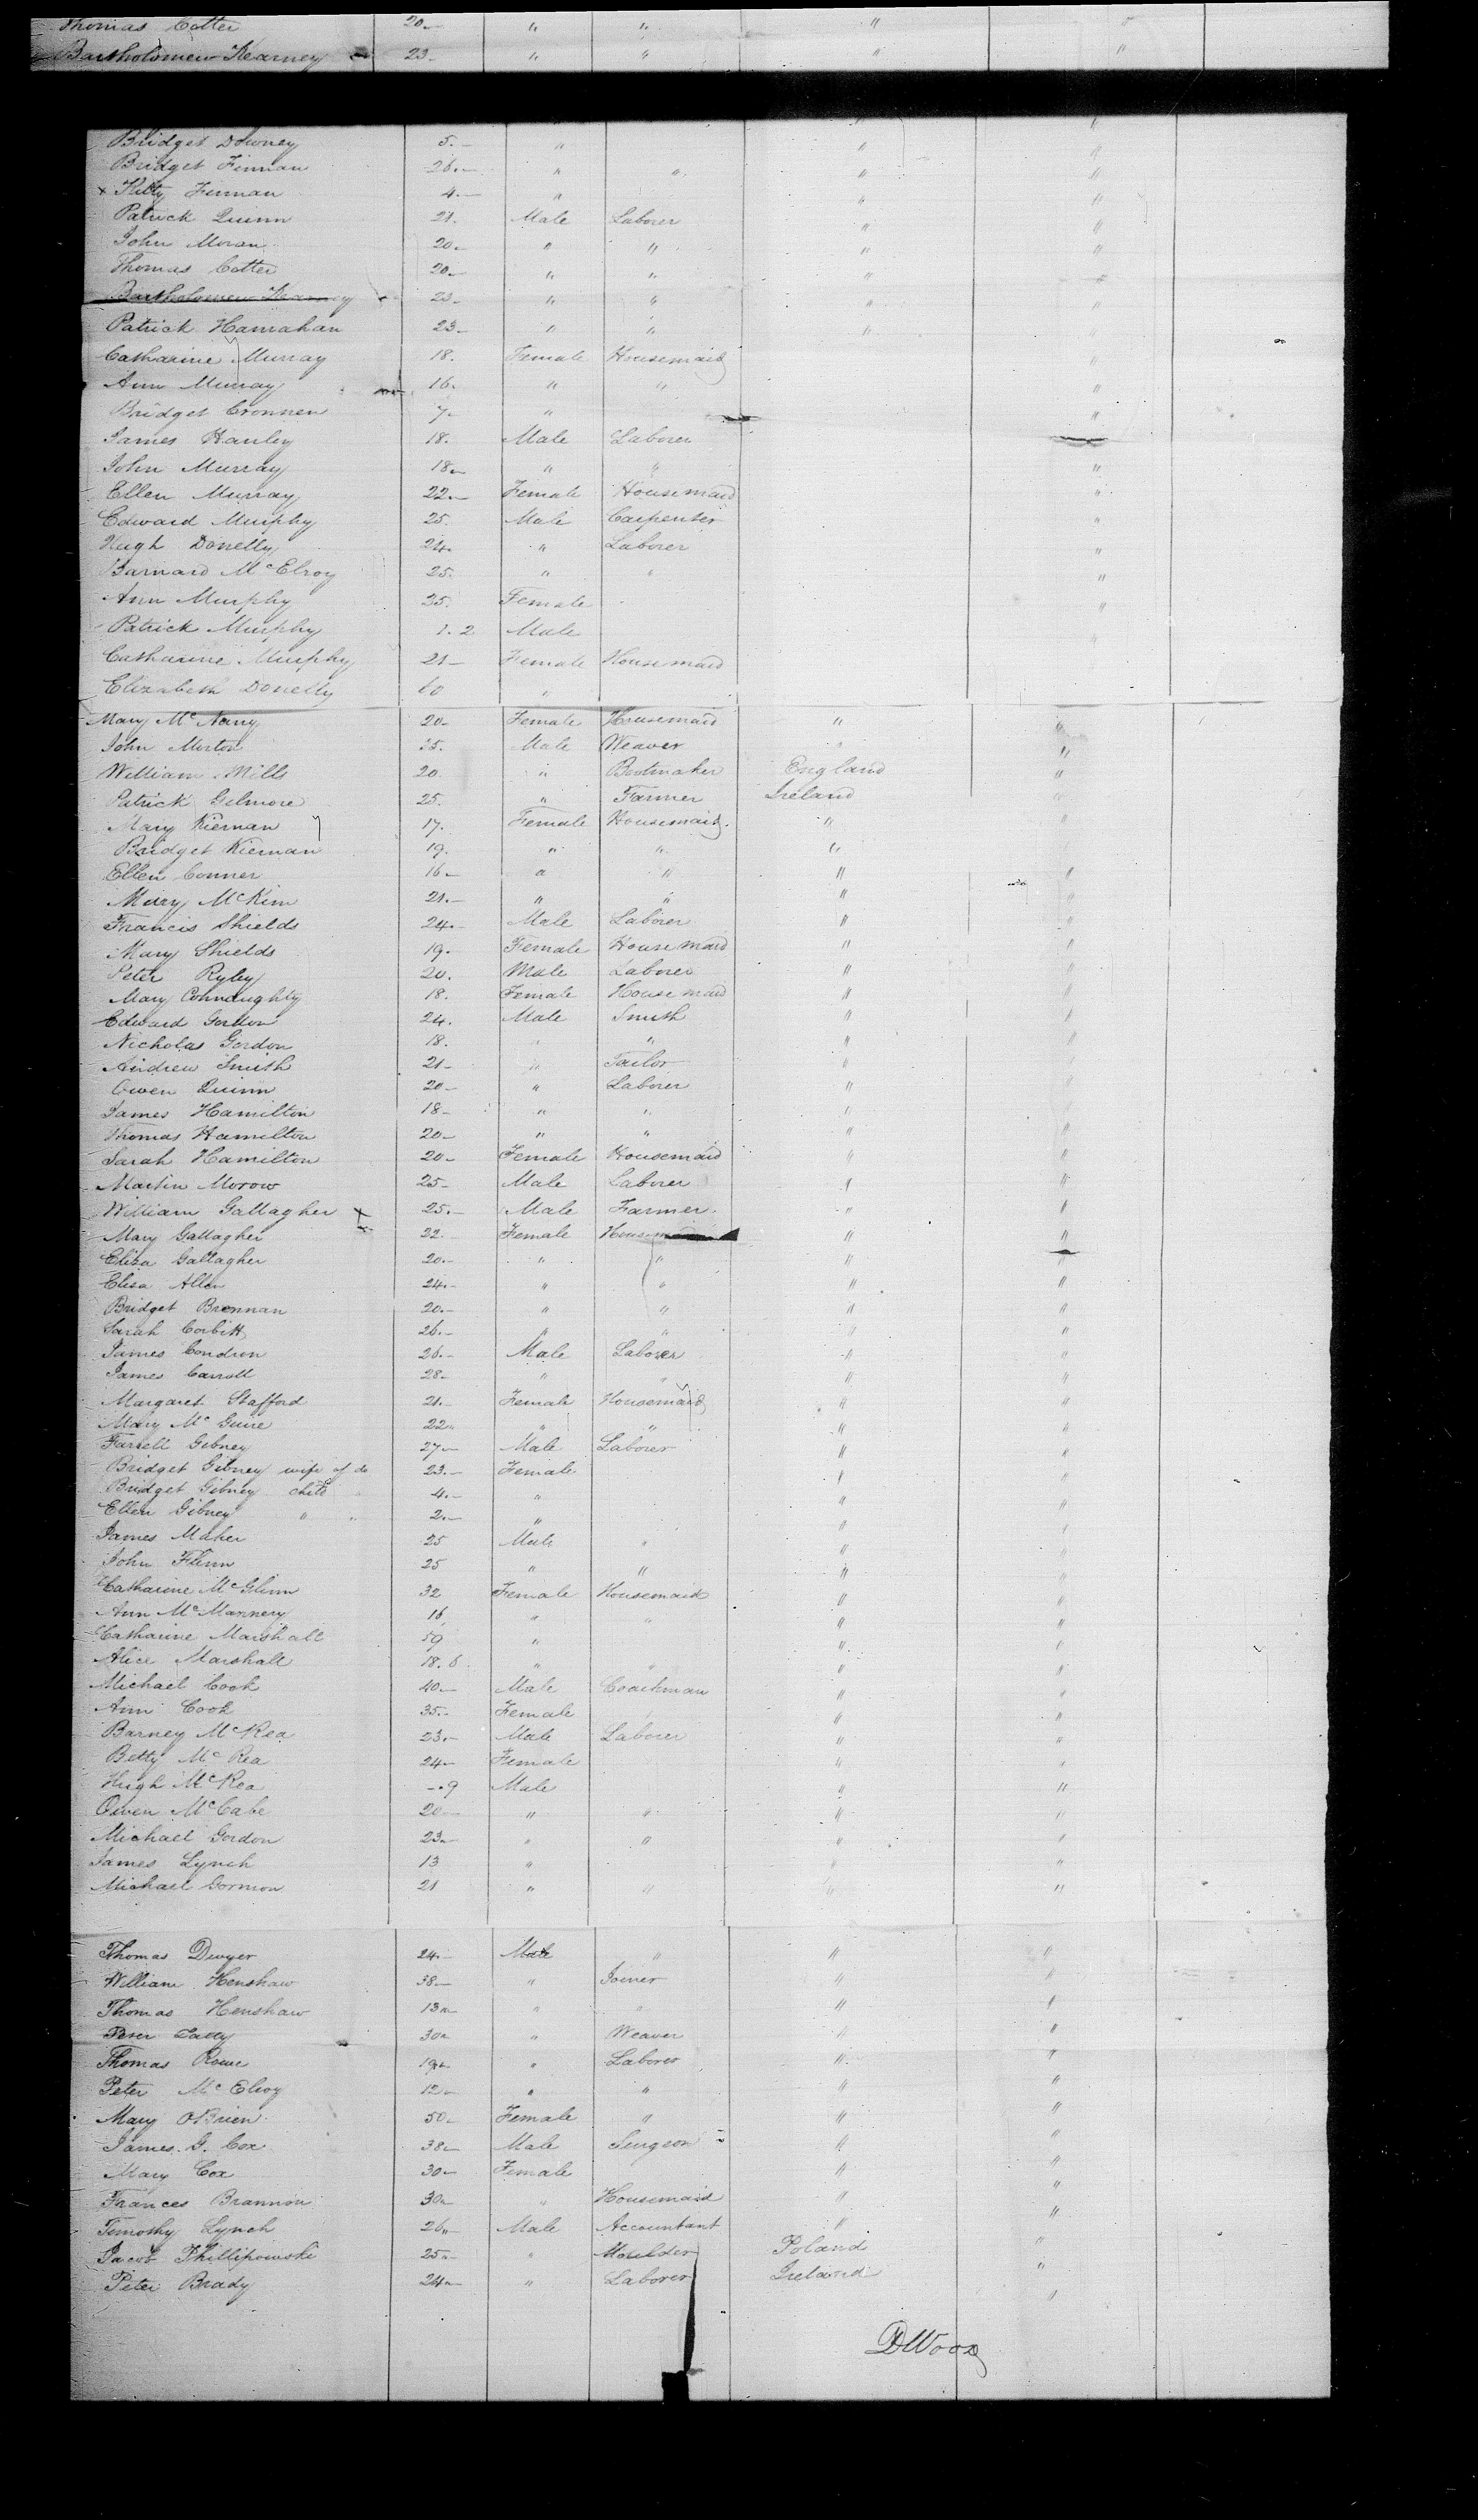 Thomas Cotter 20 " " " "
Bartholomew Kearney 23 " " " "
Bridget Downey 5 " " "
Bridget Finnan 26 " " " "
x Kitty Finnan 4 " " "
Patrick Quinn 21 Male Laborer " "
John Moran 20 " " " "
Thomas Cotter 20 " " " "
Bartholomew Kearney 23 " " " "
Patrick Hanrahan 23 " " " "
Catharine Murray 18 Female Housemaid "
Ann Murray 16 " " "
Bridget Cronnen 7 " "
James Hanley 18 Male Laborer "
John Murray 18 " " "
Ellen Murray 22 Female Housemaid "
Edward Murphy 25 Male Carpenter "
Hugh Donelly 24 " Laborer "
Barnard McElroy 25 " " "
Ann Murphy 25 Female "
Patrick Murphy 1.2 Male "
Catharine Murphy 21 Female Housemaid
Elizabeth Donelly 60 "
Mary McNany 20 Female Housemaid " "
John Morton 35 Male Weaver " "
William Mills 20 " Bootmaker England "
Patrick Gilmore 25 " Farmer Ireland "
Mary Kiernan 17 Female Housemaid " "
Bridget Kiernan 19 " " " "
Ellen Conner 16 " " " "
Mary McKim 21 " " " "
Francis Shields 24 Male Laborer " "
Mary Shields 19 Female Housemaid " "
Peter Ryley 20 Male Laborer " "
Mary Connaughty 18 Female Housemaid " "
Edward Gordon 24 Male Smith " "
Nicholas Gordon 18 " " " "
Andrew Smith 21 " Tailor " "
Owen Quinn 20 " Laborer " "
James Hamilton 18 " " " "
Thomas Hamilton 20 " " " "
Sarah Hamilton 20 Female Housemaid " "
Martin Morow 25 Male Laborer " "
William Gallagher x 25 Male Farmer " "
Mary Gallagher 22 Female Housemaid " "
Eliza Gallagher 20 " " " "
Elisa Allen 24 " " " "
Bridget Brennan 20 " " " "
Sarah Corbitt 26 " " " "
James Condren 26 Male Laborer " "
James Carroll 28 " " " "
Margaret Stafford 21 Female Housemaid " "
Mary McGuire 22 " " " "
Farrell Gibney 27 Male Laborer " "
Bridget Gibney wife of do 23 Female " "
Bridget Gibney child 4 " " "
Ellen Gibney " " 2 " " "
James Maher 25 Male " " "
John Flinn 25 " " " "
Catharine McGlinn 32 Female Housemaid " "
Ann McMannery 16 " " " "
Catharine Marshall 59 " " "
Alice Marshall 18.6 " " " "
Michael Cook 40 Male Coachman " "
Ann Cook 35 Female " "
Barney McRea 23 Male Laborer " "
Betty McRea 24 Female " "
Hugh McRea -.9 Male " "
Owen McCabe 20 " " " "
Michael Gordon 23 " " " "
James Lynch 13 " " "
Michael Gormon 21 " " " "
Thomas Dwyer 24 Male " " "
William Henshaw 38 " Joiner " "
Thomas Henshaw 13 " " " "
Peter 30 " Weaver " "
Thomas Rowe 19 " Laborer " "
Peter McElroy 12 " " " "
Mary O'Brien 50 Female " " "
James G. Cox 38 Male Surgeon " "
Mary Cox 30 Female " "
Frances Brannon 30 " Housemaid " "
Timothy Lynch 26 Male Accountant " "
Jacob Phillipowski 25 " Moulder Poland "
Peter Brady 24 " Laborer Ireland "
DWood